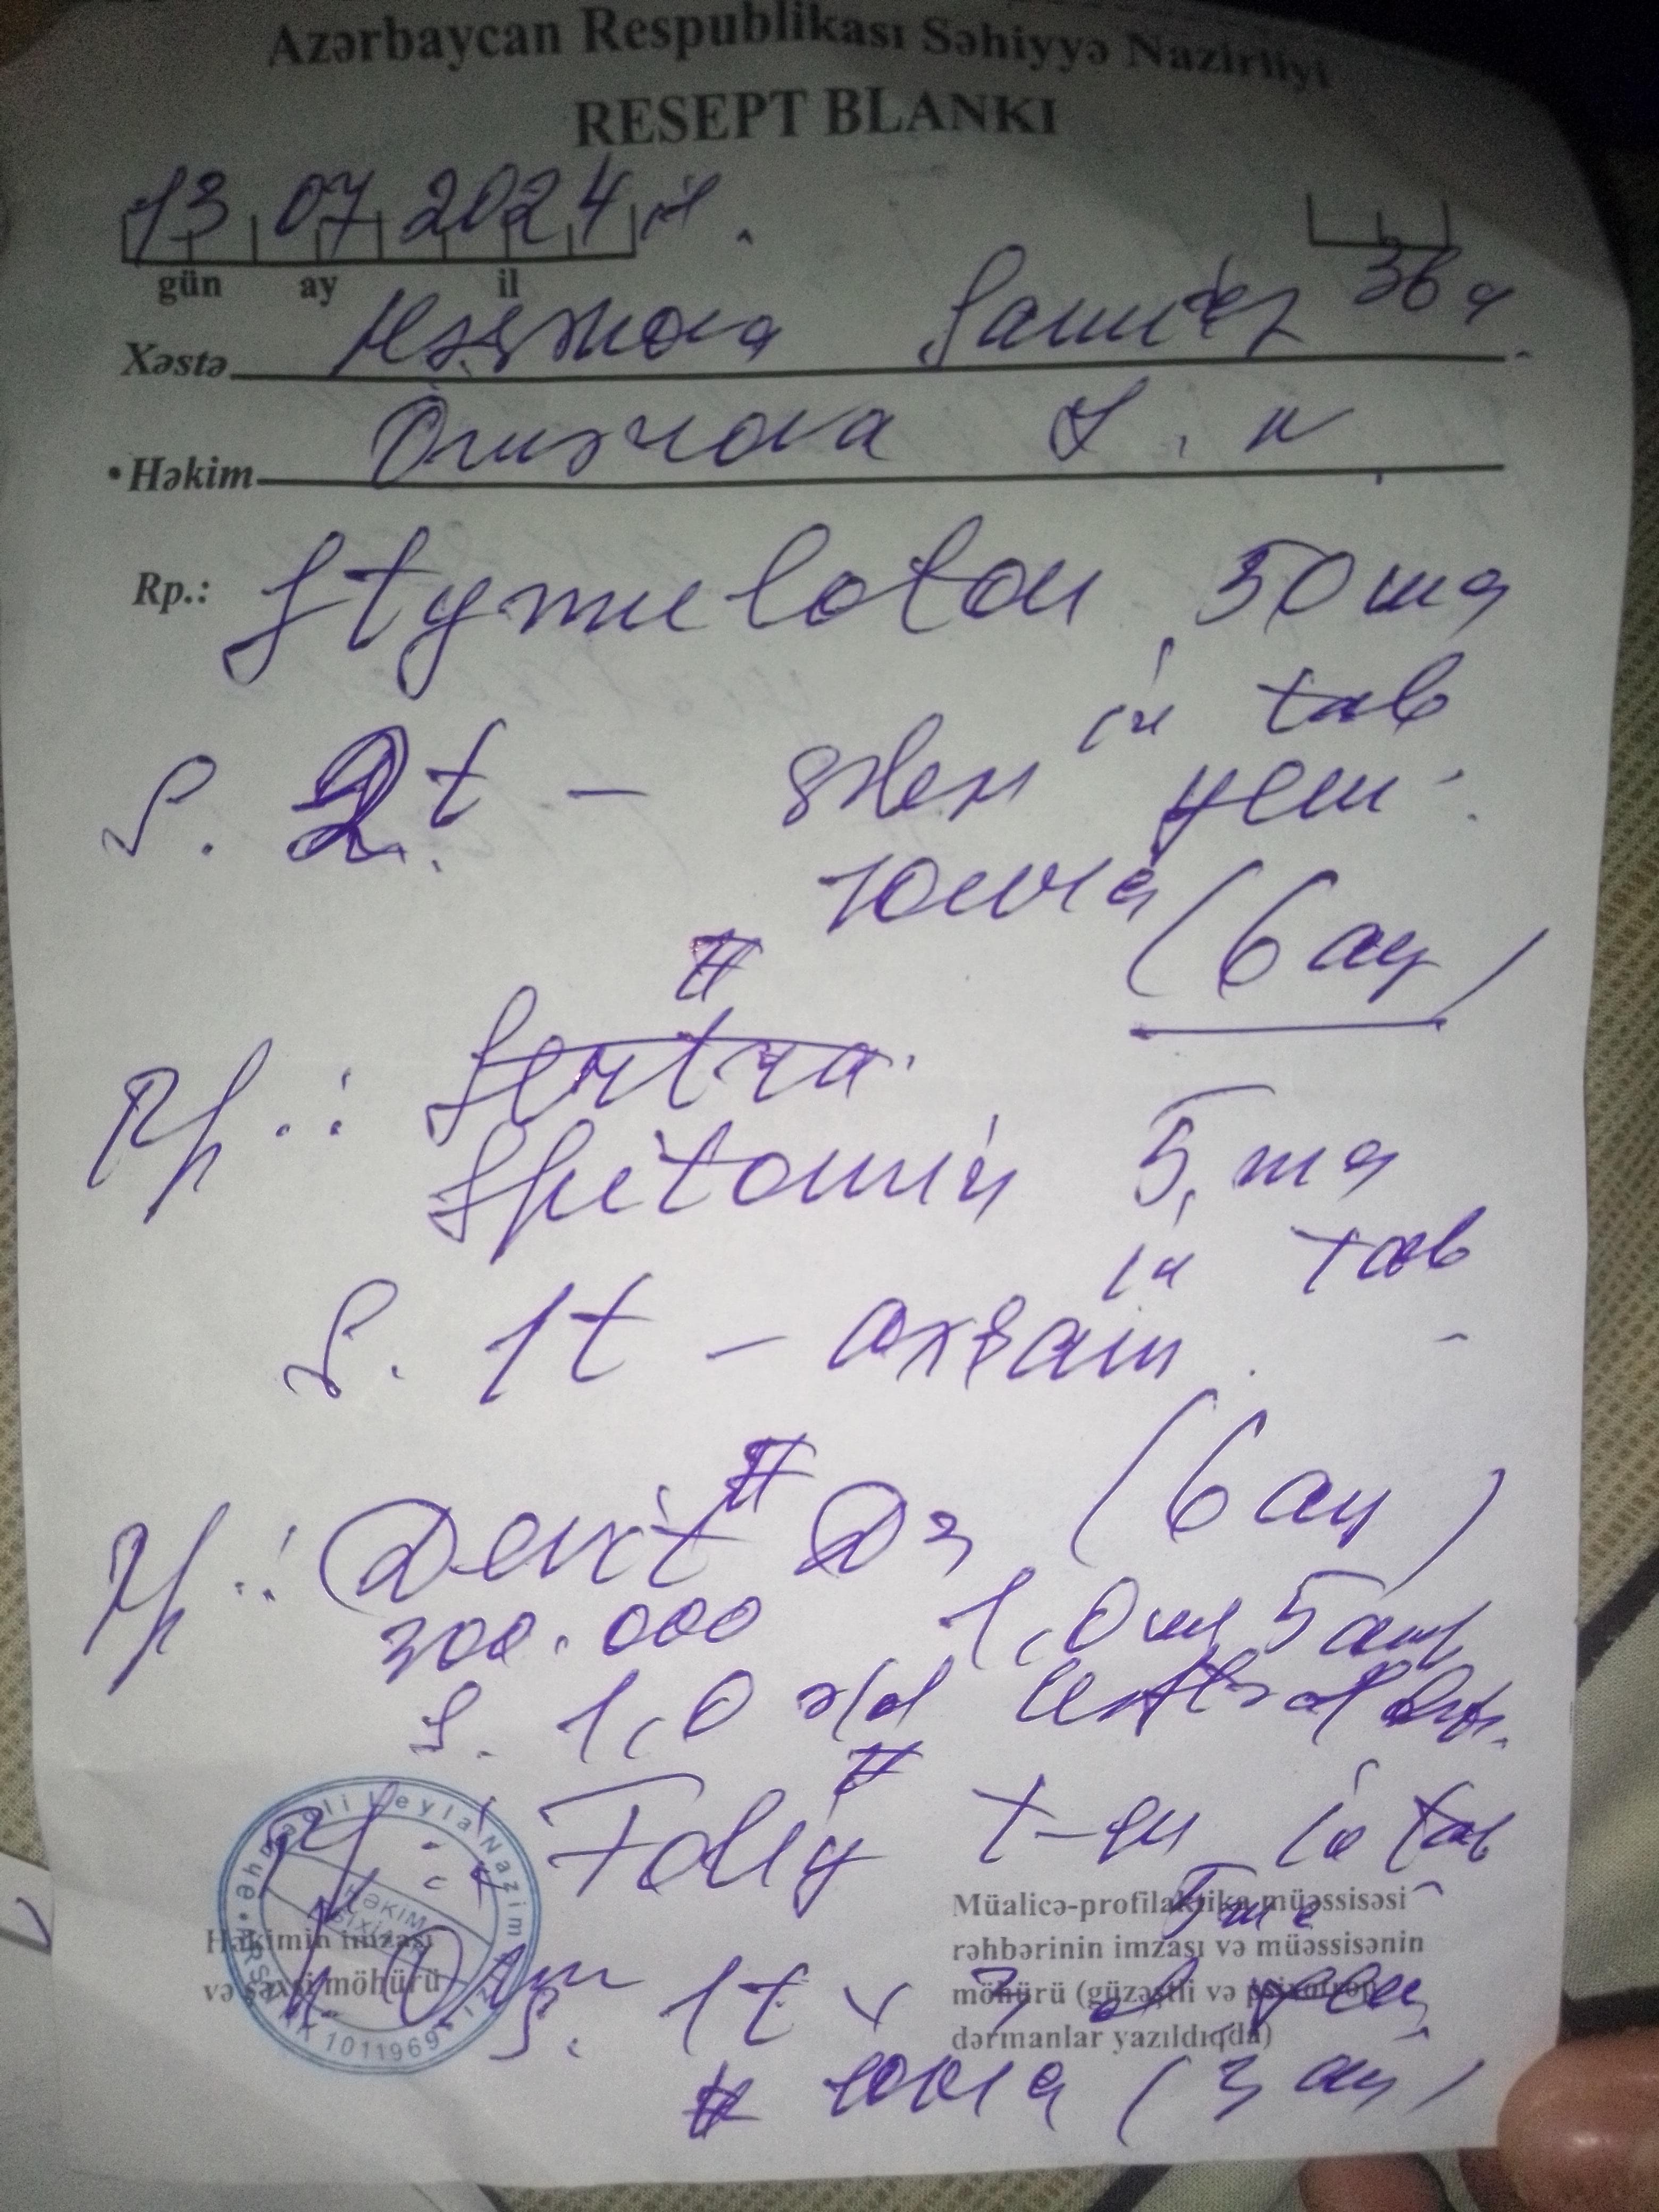 Azərbaycan Respublikası Səhiyyə Nazirliyi
RESEPT BLANKI
13 07 2024 il.
gün ay il
Xəstə 36 y.
Həkim
Rp.: Stymuloton 50 mg
in tab
S. 2t - səhər yem.
sonra
(6 ay)
#
Rp.: Sertra.
Spitomin 5 mg
in tab
S. 1t - axşam.
#
(6 ay)
Rp.: Devit D3
300.000 1,0 ml 5 amp
S. 1,0 ə/d
#
Rp.: Foliy t-su in tab
5 mg
Həkimin imzası
və şəxsi möhürü
Müalicə-profilaktika müəssisəsi
rəhbərinin imzası və müəssisənin
möhürü (güzəştli və psixotrop
dərmanlar yazıldıqda)
S. 1t x 3
# sonra (3 ay)
Leyla Nazim
HƏKİM